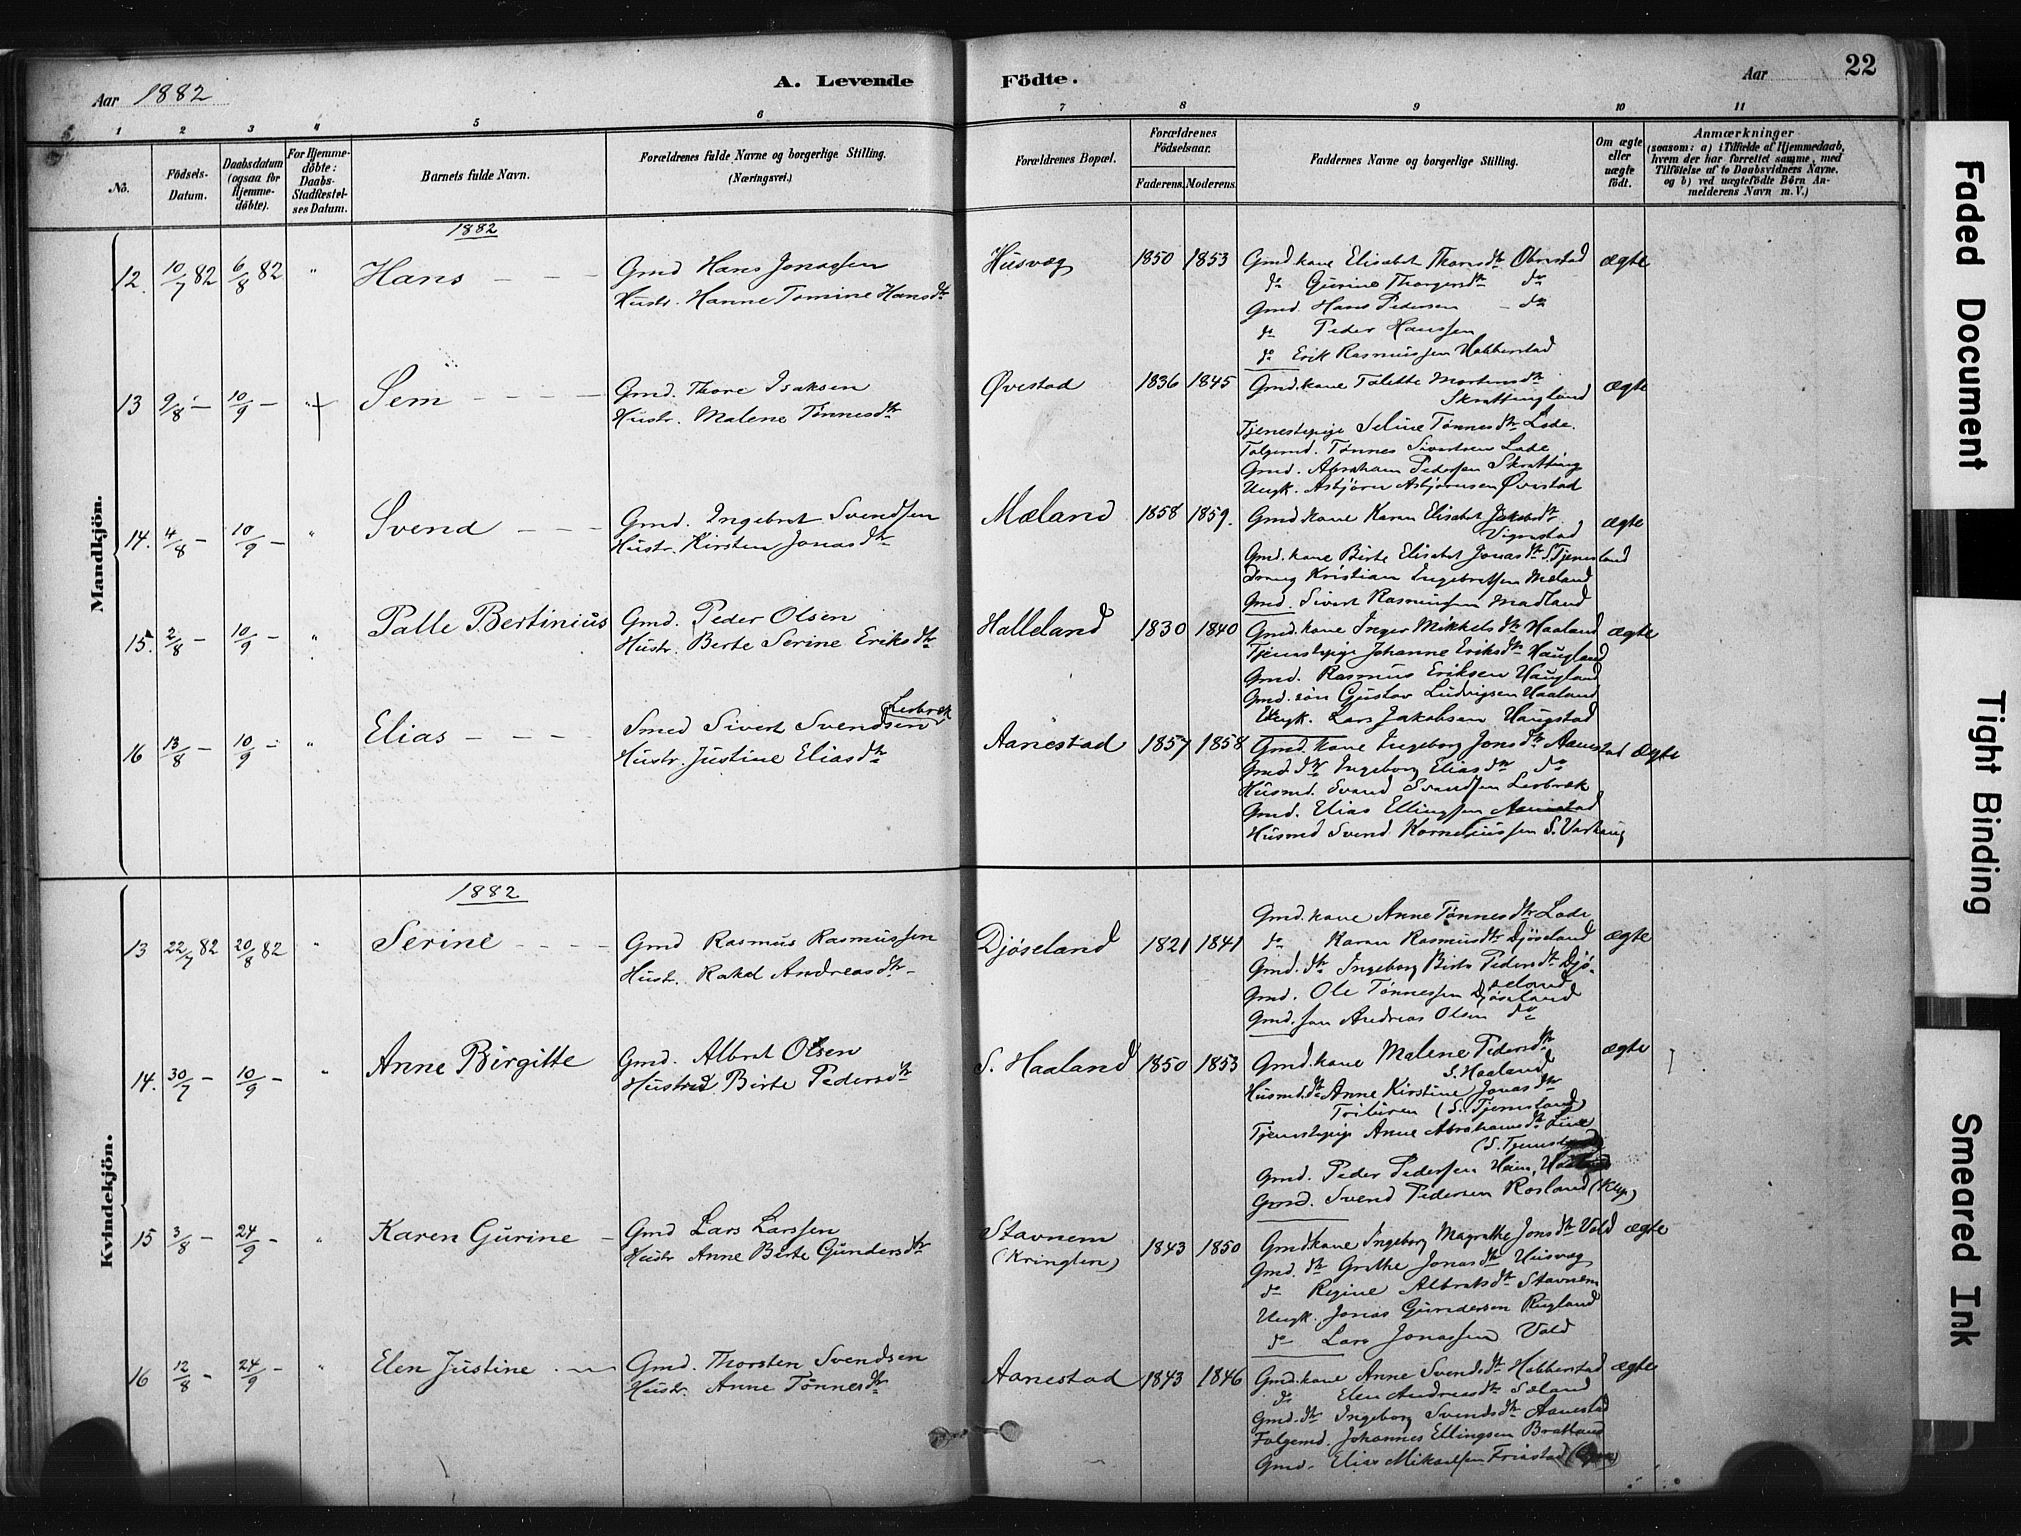 Aar 1882
A. Levende
Födte.
Aar
22
1 2 3 4 5 6 7 8 9 10 11
No.
Födsels-Datum.
Daabsdatum (ogsaa for Hjemme-döbte).
For Hjemme-döbte: Daabs-Stadfæstel-ses Datum.
Barnets fulde Navn.
Forældrenes fulde Navne og borgerlige Stilling. (Næringsvei.)
Forældrenes Bopæl.
Forældrenes Födselsaar.
Faderens. Moderens.
Faddernes Navne og borgerlige Stilling.
Om ægte eller uægte födt.
Anmærkninger (saasom: a) i Tilfælde af Hjemmedaab, hvem der har forrettet samme, med Tilföielse af to Daabsvidners Navne, og b) ved uægtefödte Börn An-melderens Navn m. V.)
Mandkjön.
1882
12. 10/7 82 6/8 82 " Hans
Gmd Hans Jonassen
Hustr. Hanne Tomine Hansdtr
Husvæg 1850 1853
Gmd. kone Elisabet Thoresdtr Obrestad ægte
do Gurine Thorgersdtr do
Gmd. Hans Pedersen do
do Peder Hanssen
do Erik Rasmussen Habberstad
13 9/8 - 10/9 - Sem
Gmd. Thore Isaksen
Hustr. Malene Tønnesdtr
Øvestad 1836 1845
Gmd. kone Talette Mortensdtr
Skrattingland ægte
Tjenestepige Seline Tønnesdtr Lode.
Følgemd. Tønnes Sivertsen Lode
Gmd. Abraham Pedersen Skratting
Ungk. Asbjørn Asbjørnsen Øvestad
14. 4/8 - 10/9 - " Svend
Gmd. Ingebret Svendsen
Hustr. Kirsten Jonasdtr
Mæland 1858 1859.
Gmd. kone Karen Elisabet Jakobsdtr
Vigrestad ægte
Gmd. kone Birte Elisabet Jonasdtr S. Tjemsland
Dreng Kristian Ingebretsen Mæland
Gmd. Sivert Rasmussen Madland
15. 2/8 - 10/9 - " Palle Bertinius
Gmd. Peder Olsen
Hustr. Berte Serine Eriksdtr
Halleland 1830 1840
Gmd. kone Inger Mikkelsdtr Haaland ægte
Tjenestepige Johanne Eriksdtr Haugland
Gmd. Rasmus Eriksen Haugland
Gmd. søn Gustav Ludvigsen Haaland
Ungk. Lars Jakobsen Haugstad
16 13/8 - 10/9 - " Elias
Smed Sivert Svendsen Lerbræk
Hustr. Justine Eliasdtr
Aanestad 1857 1858
Gmd. kone Ingeborg Jonsdtr Aanestad ægte
Gmd. dtr Ingeborg Eliasdtr do
Husmd. Svend Svendsen Lerbræk
Gmd. Elias Ellingsen Aanestad
Husmd Svend Korneliussen S. Varhaug
Kvindekjön.
1882
13 22/7 82 20/8 82 " Serine
Gmd Rasmus Rasmussen
Hustr. Rakel Andreasdtr
Djøseland 1821 1841
Gmd. kone Anne Tønnesdtr Lode
do Karen Rasmusdtr Djøseland ægte
Gmd. dtr Ingeborg Birte Pedersdtr Djø-
seland
Gmd. Ole Tønnessen Djøseland
Gmd. Jon Andreas Olsen do
14. 30/7 - 10/9 - " Anne Birgitte
Gmd. Albret Olsen
Hustru Birte Pedersdtr
S. Haaland 1850 1853
Gmd. kone Malene Pedersdtr
S. Haaland ægte
Husmd. dtr Anne Kirstine Jonasdtr
(S. Tjemsland)
Tjenestepige Anne Abrahamsdtr
Gmd. Peder Pedersen
Gmd. Svend Pedersen Rosland (Klep)
15 3/8 - 24/9 - " Karen Gurine
Gmd Lars Larssen
Hustr Anne Berte Gundersdtr
Stavnem
(Kringlen) 1843 1850
Gmd. kone Ingeborg Magrethe Jonsdtr Vold ægte
Gmd. dtr Grethe Jonasdtr Husvæg
do Regine Albretsdtr Stavnem
Ungk. Jonas Gundersen Rugland
do Lars Jonassen Vold
16 12/8 - 24/9 - " Elen Justine
Gmd. Thorsten Svendsen
Hustr. Anne Tønnesdtr
Aanestad 1843 1846
Gmd. kone Anne Svendsdtr Habberstad ægte
do Elen Andreasdtr Sæland
Gmd. dtr Ingeborg Svendsdtr Aanestad
Følgemd. Johannes Ellingsen Bratland
Gmd. Elias Mikaelsen Friestad
Faded Document
Tight Binding
Smeared Ink